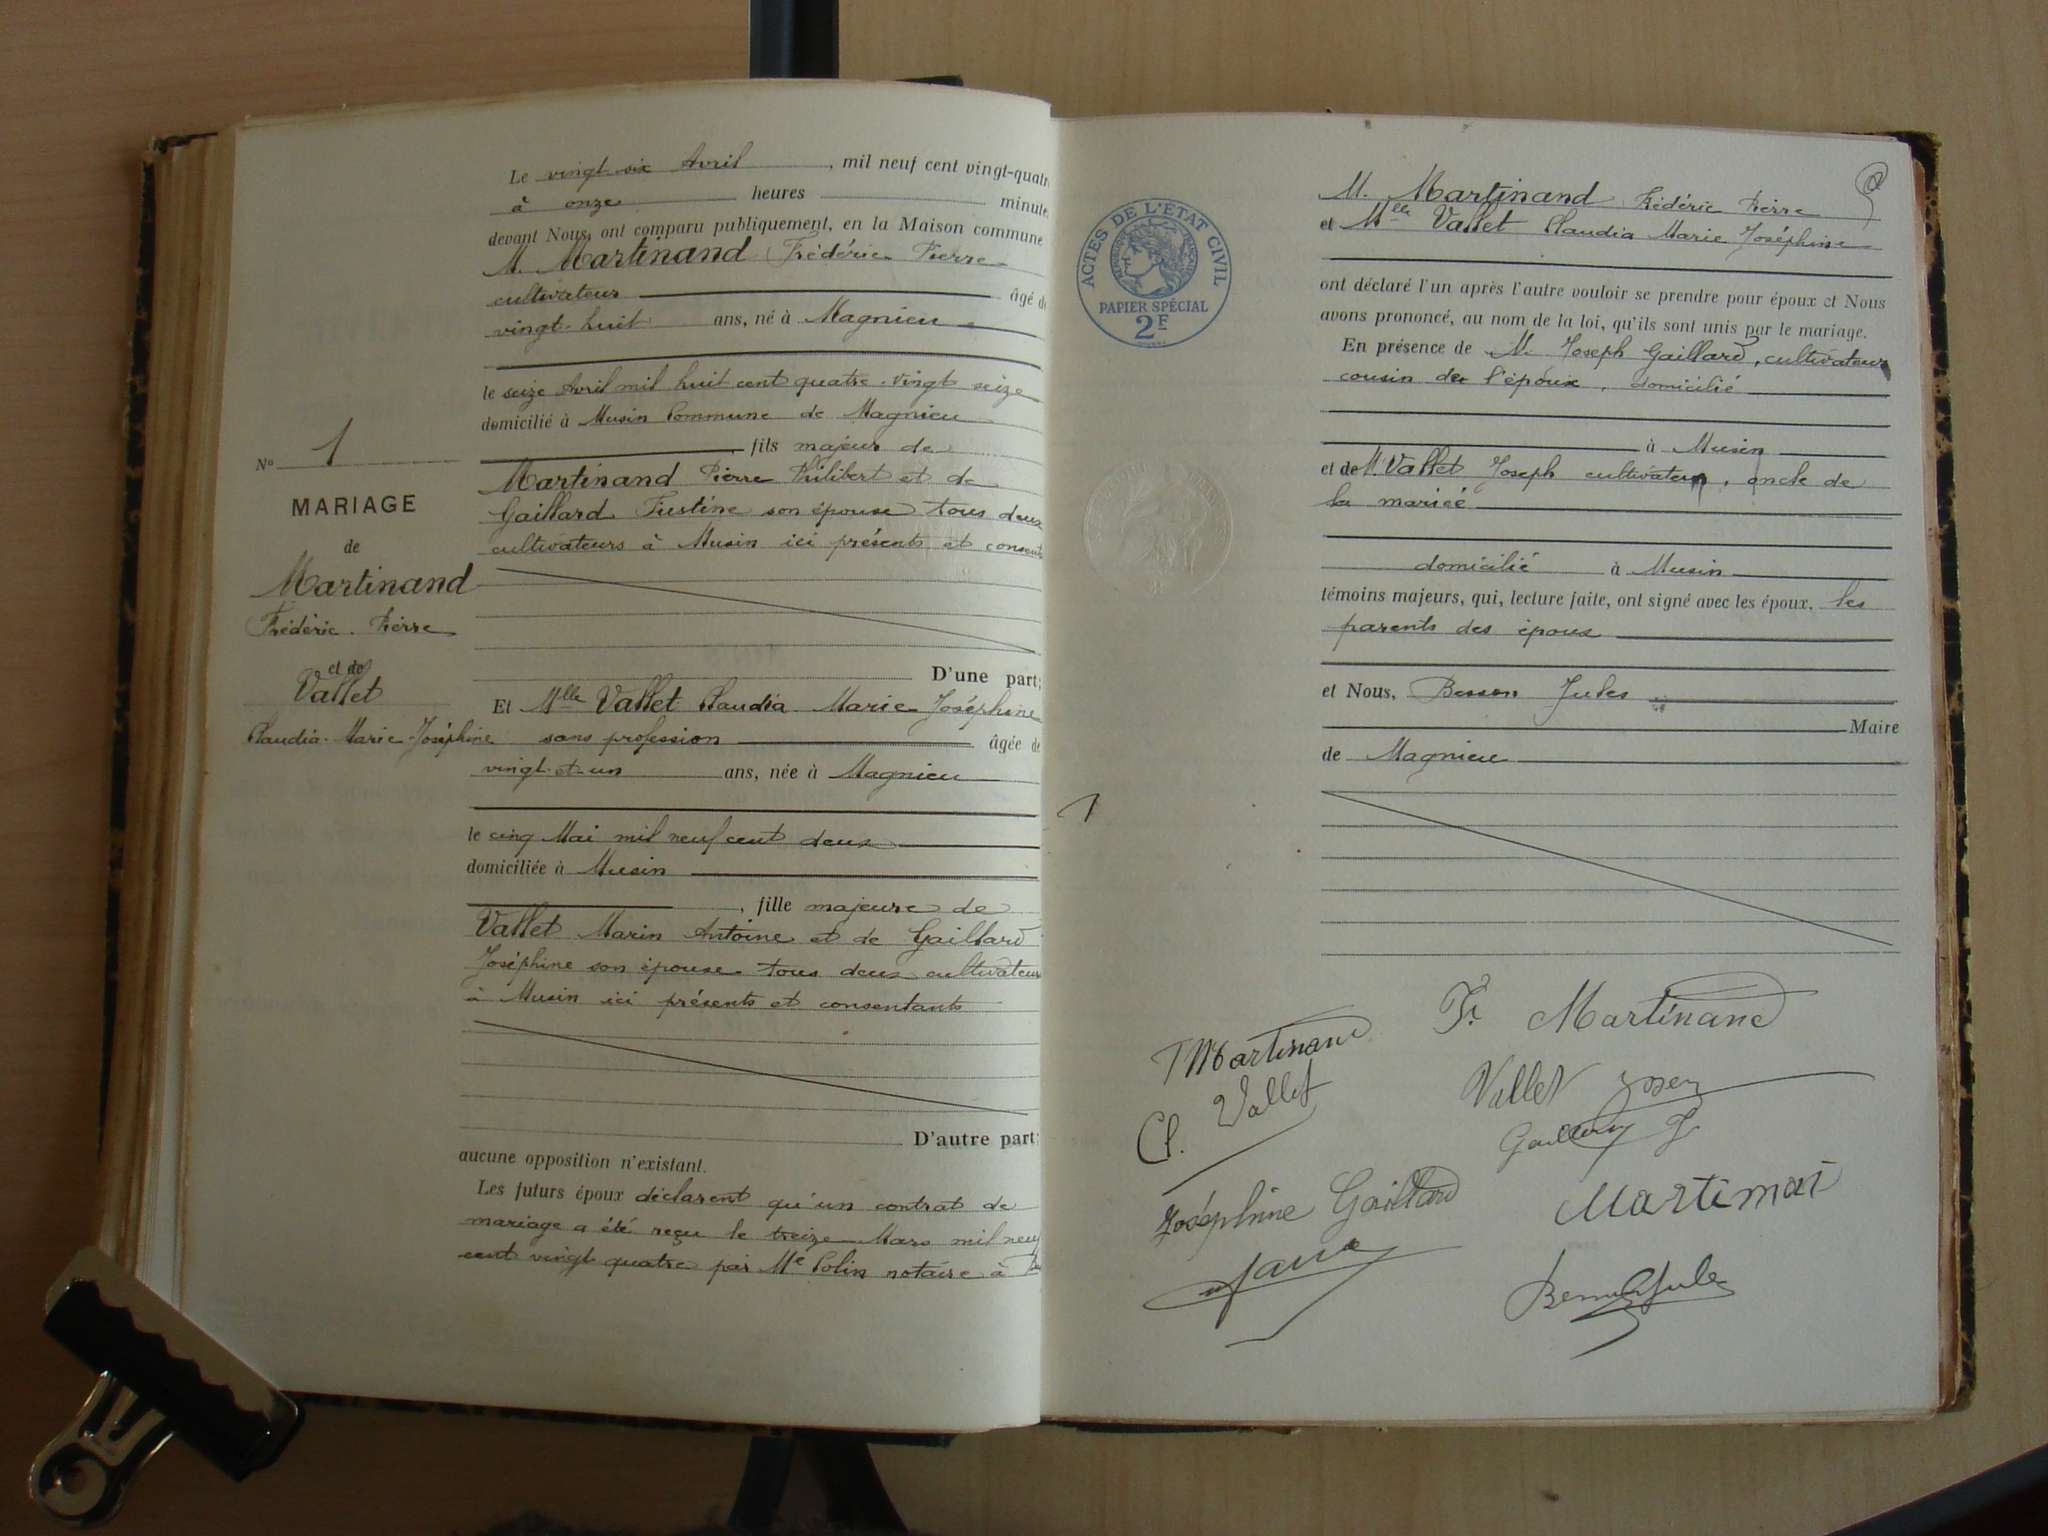 Le vingt six Avril, mil neuf cent vingt-quatre
à onze heures minutes
devant Nous, ont comparu publiquement, en la Maison commune
M. Martinand Frédéric Pierre
cultivateur âgé de
vingt-huit ans, né à Magnieu
le seize Avril mil huit cent quatre-vingt seize
domicilié à Musin Commune de Magnieu
fils majeur de
Martinand Pierre Philibert et de
Gaillard Justine son épouse tous deux
cultivateurs à Musin ici présents et consent
D'une part;
Et Mlle Vallet Claudia Marie Joséphine
sans profession âgée de
vingt-et-un ans, née à Magnieu
le cinq Mai mil neuf cent deux
domiciliée à Musin
, fille majeure de
Vallet Marin Antoine et de Gaillard
Joséphine son épouse tous deux cultivateurs
à Musin ici présents et consentants
D'autre part;
aucune opposition n'existant.
Les futurs époux déclarent qu'un contrat de
mariage a été reçu le treize Mars mil neuf
cent vingt quatre par Me Colin notaire à
No 1
MARIAGE
de
Martinand
Frédéric. Pierre
et de
Vallet
Claudia-Marie-Joséphine
ACTES DE L'ÉTAT CIVIL
RÉPUBLIQUE FRANÇAISE
PAPIER SPÉCIAL
2F
M. Martinand Frédéric Pierre
et Mlle Vallet Claudia Marie Joséphine
ont déclaré l'un après l'autre vouloir se prendre pour époux et Nous
avons prononcé, au nom de la loi, qu'ils sont unis par le mariage.
En présence de M. Joseph Gaillard, cultivateur
cousin de l'époux, domicilié
à Musin
et de M. Vallet Joseph cultivateur, oncle de
la mariée
domicilié à Musin
témoins majeurs, qui, lecture faite, ont signé avec les époux, les
parents des époux
et Nous, Besson Jules
Maire
de Magnieu
Fr Martinand
Martinand
Vallet
Cl. Vallet
Joséphine Gaillard
Martinand